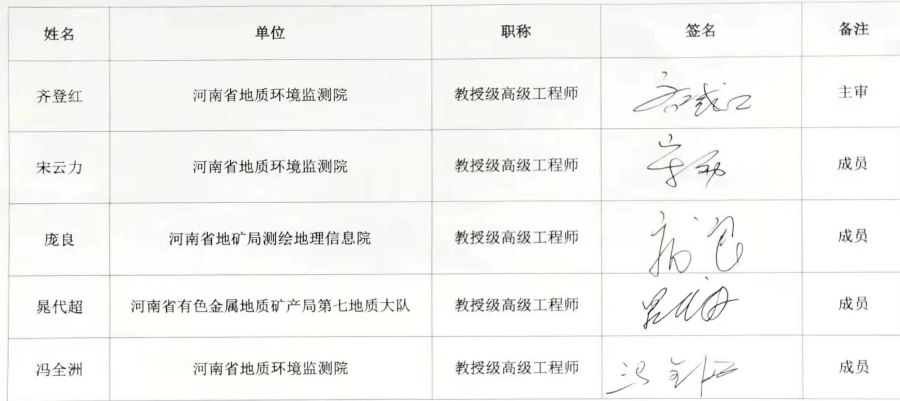 姓名 单位 职称 签名 备注
齐登红 河南省地质环境监测院 教授级高级工程师 齐登红 主审
宋云力 河南省地质环境监测院 教授级高级工程师 成员
庞良 河南省地矿局测绘地理信息院 教授级高级工程师 庞良 成员
晁代超 河南省有色金属地质矿产局第七地质大队 教授级高级工程师 成员
冯全洲 河南省地质环境监测院 教授级高级工程师 冯全洲 成员